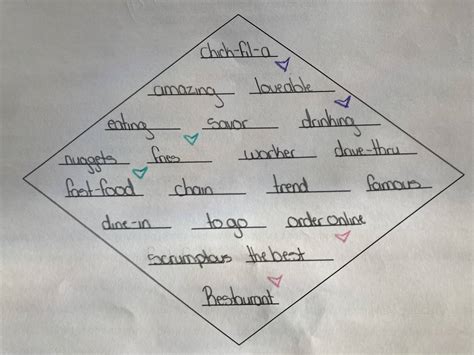 chick-fil-a
amazing loveable
eating savor drinking
nuggets fries worker drive-thru
fast-food chain trend famous
dine-in to go order online
scrumptous the best
Restaurant